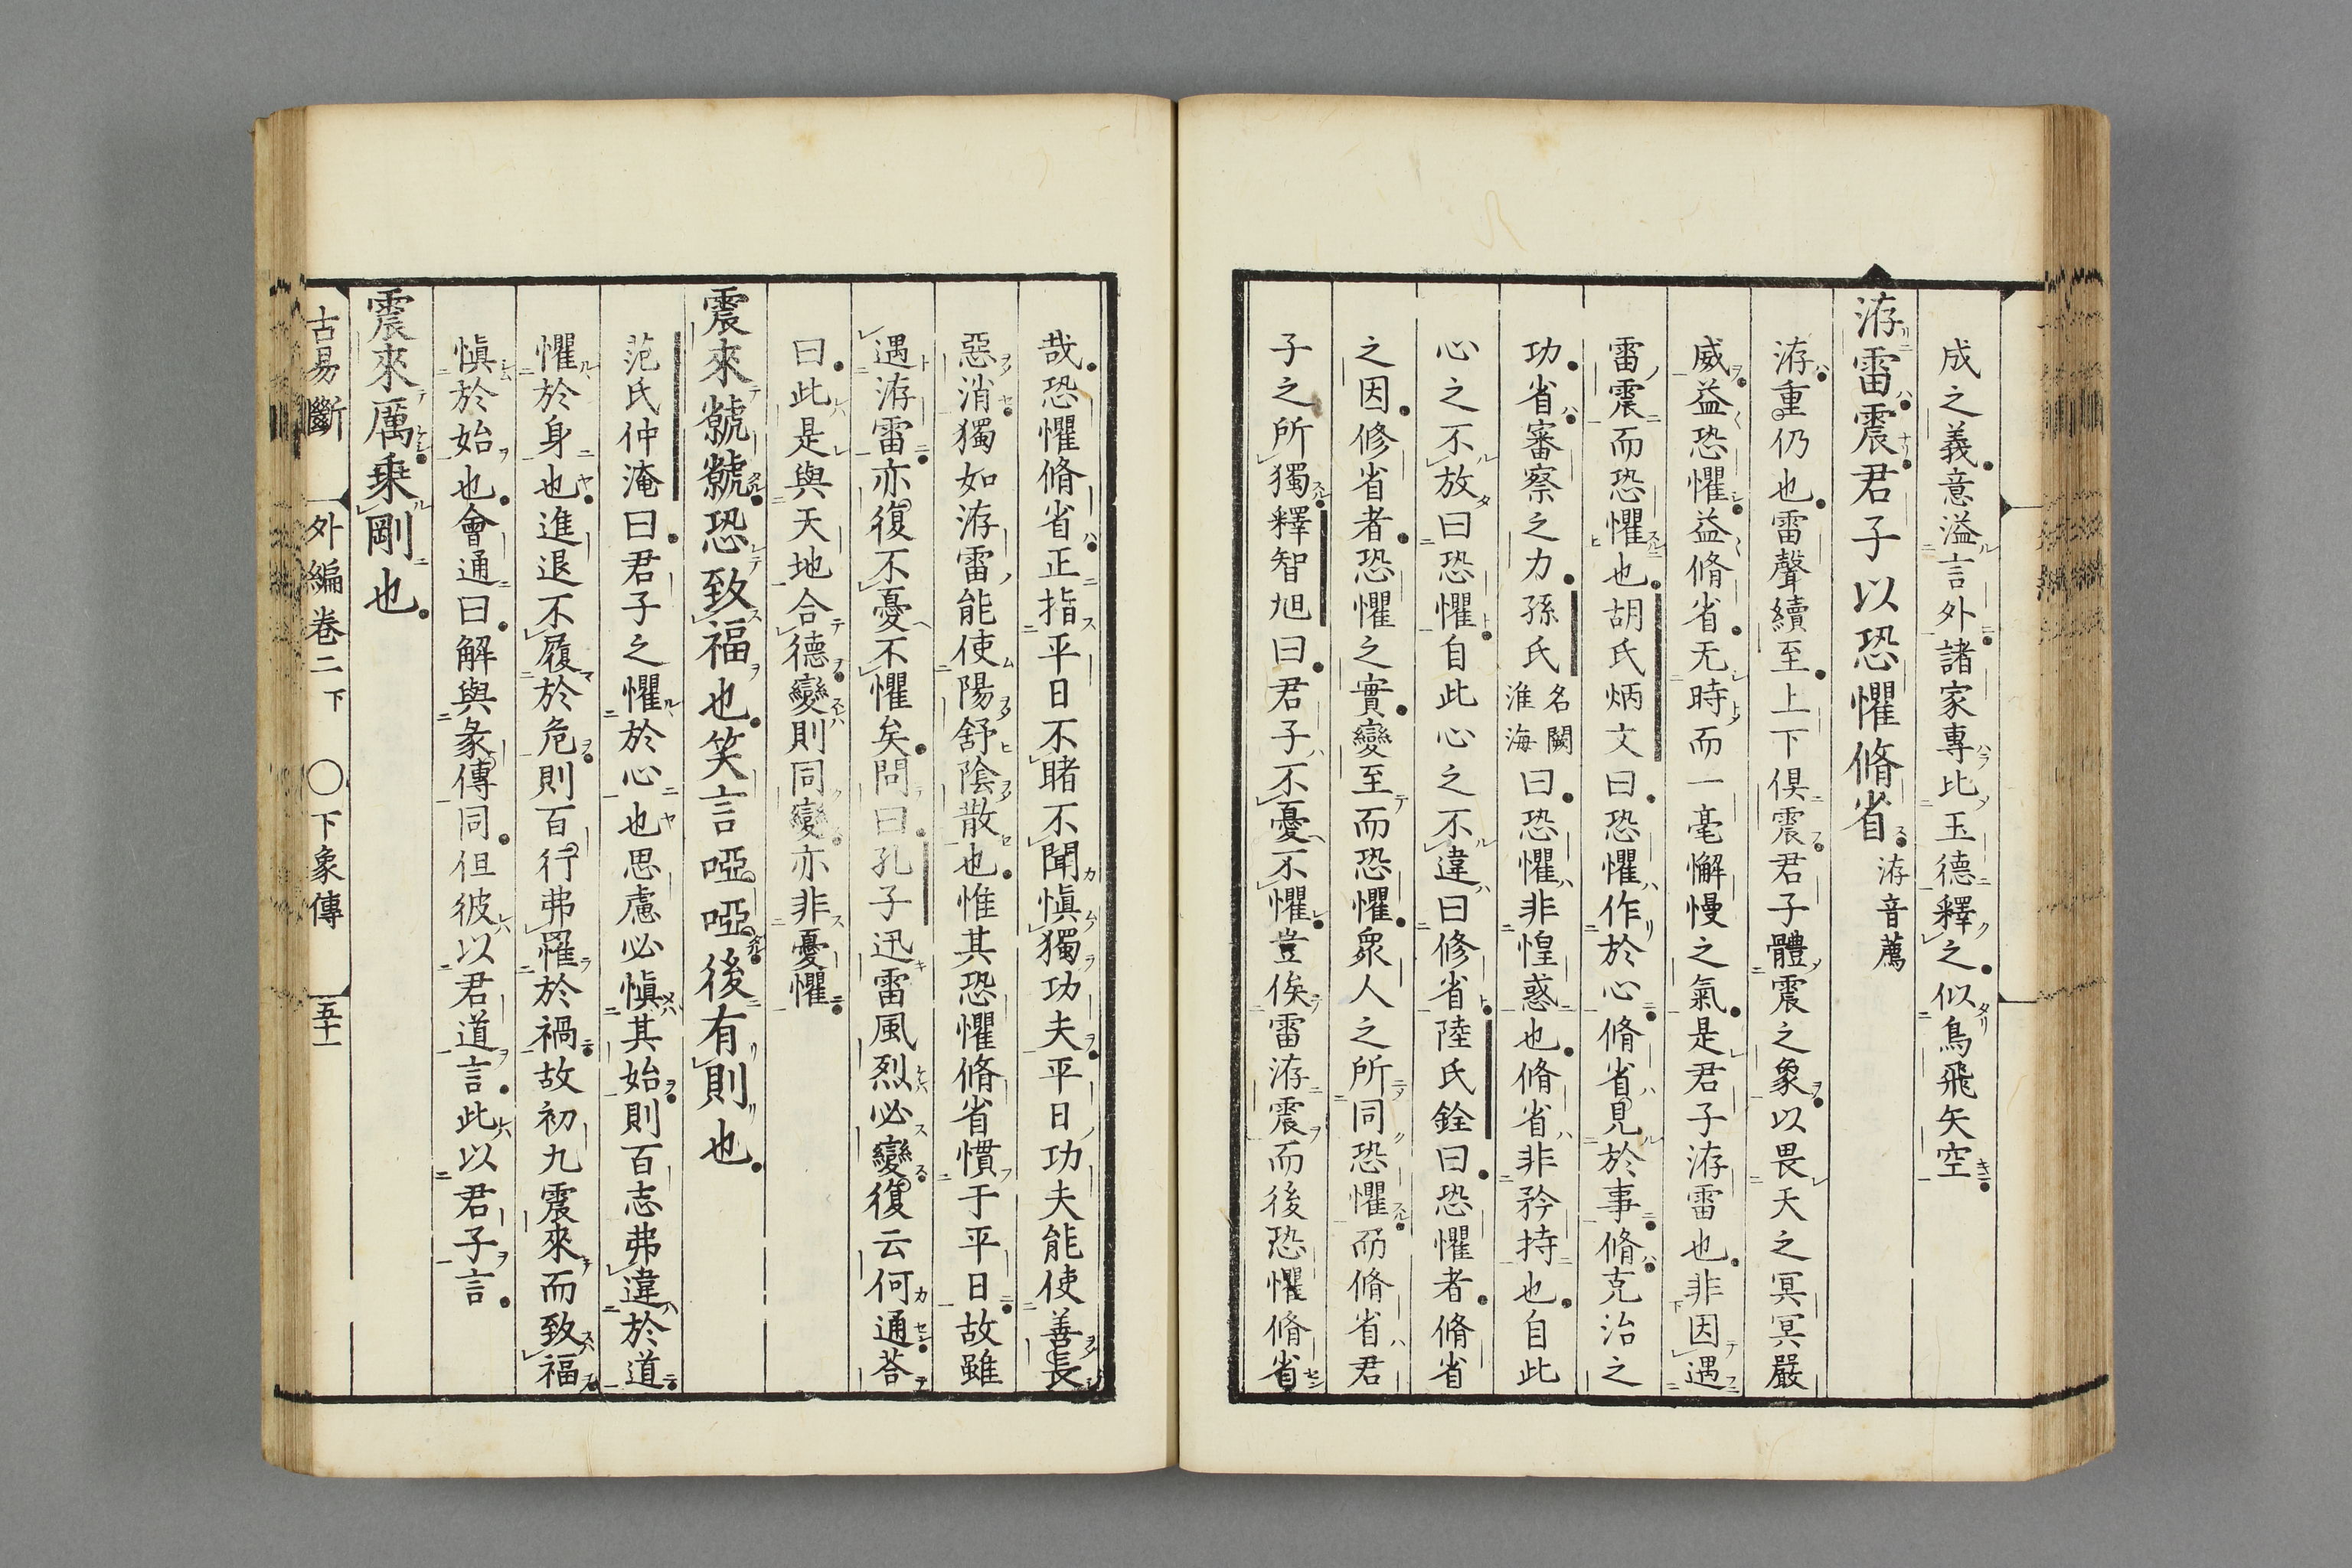 成之義意溢言外諸家專比玉德釋之似鳥飛矢空
洊雷震君子以恐懼脩省洊音薦
洊重仍也雷聲續至上下俱震君子體震之象以畏天之冥冥嚴
威益恐懼益脩省无時而一毫懈慢之氣是君子洊雷也非因遇
雷震而恐懼也胡氏炳文曰恐懼作於心脩省見於事脩克治之
功省審察之力孫氏名闕淮海曰恐懼非惶惑也脩省非矜持也自此
心之不放曰恐懼自此心之不違曰修省陸氏銓曰恐懼者脩省
之因修省者恐懼之實變至而恐懼衆人之所同恐懼而脩省君
子之所獨釋智旭曰君子不憂不懼豈俟雷洊震而後恐懼脩省
哉恐懼脩省正指平日不睹不聞愼獨功夫平日功夫能使善長
惡消獨如洊雷能使陽舒陰散也惟其恐懼脩省慣于平日故雖
遇洊雷亦復不憂不懼矣問曰孔子迅雷風烈必變復云何通荅
曰此是與天地合德變則同變亦非憂懼
震來虩虩恐致福也笑言啞啞後有則也
范氏仲淹曰君子之懼於心也思慮必愼其始則百志弗違於道
懼於身也進退不履於危則百行弗罹於禍故初九震來而致福
愼於始也會通曰解與彖傳同但彼以君道言此以君子言
震來厲乗剛也
古易斷 外編卷二下 ○下象傳 五十一